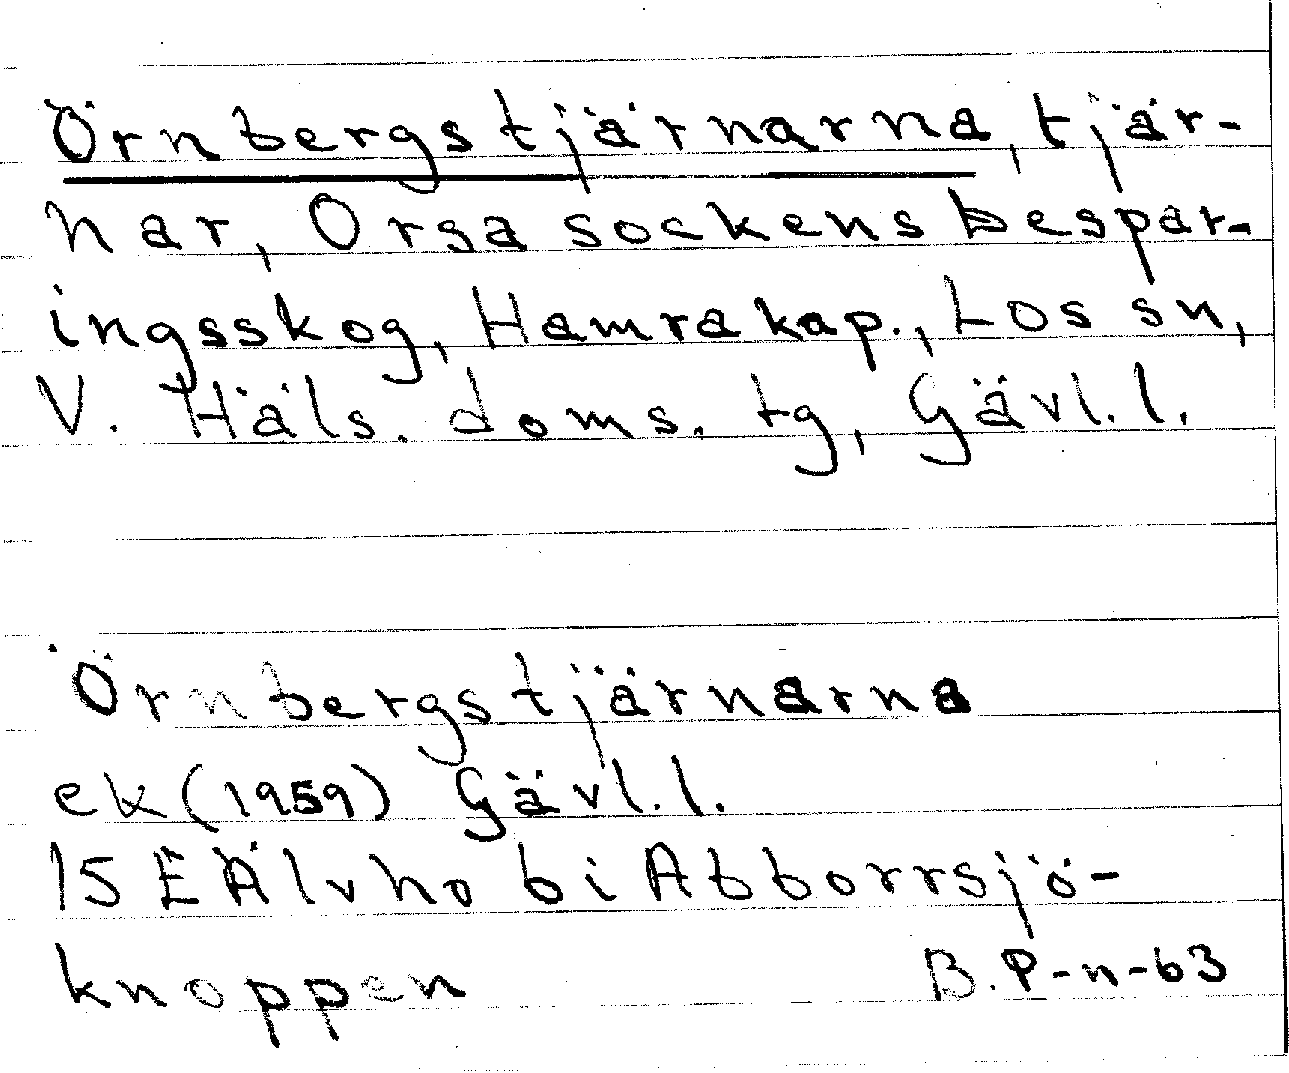 Örnbergstjärnarna, tjär-
nar, Orsa sockens bespar-
ingsskog, Hamra kap., Los sn,
V. Häls. doms. tg, Gävl. l.
Örnbergstjärnarna
ek (1959) Gävl. l.
15 E Älvho bi Abborrsjö-
knoppen B. P-n-63